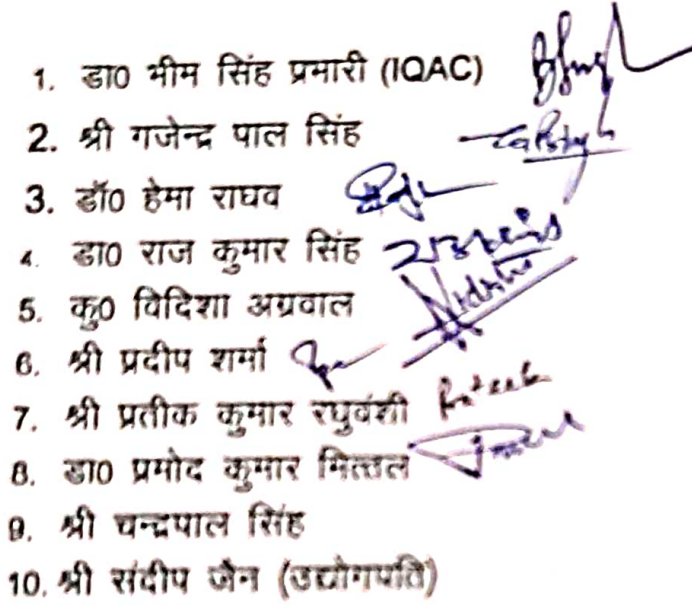 1. डा0 भीम सिंह प्रमारी (IQAC)
2. श्री गजेन्द्र पाल सिंह
3. डॉ0 हेमा राघव
4. डा0 राज कुमार सिंह
5. कु0 विदिशा अग्रवाल
6. श्री प्रदीप शर्मा
7. श्री प्रतीक कुमार रघुवंशी Prateek
8. डा0 प्रमोद कुमार मित्तल
9. श्री चन्द्रपाल सिंह
10. श्री संदीप जैन (उद्योगपति)